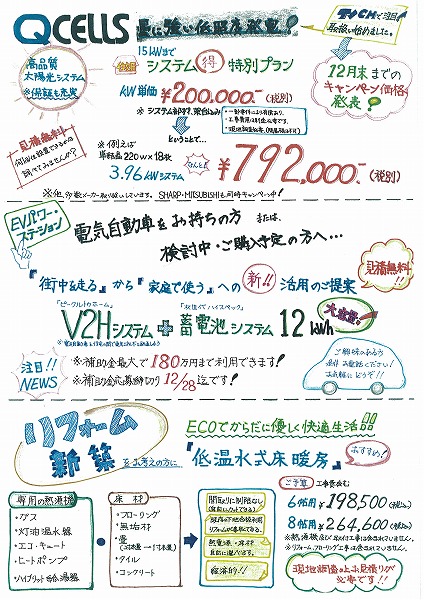 QCELLS
TVCMで注目!
取扱い始めました。
高品質
太陽光システム
※保証も充実
15kWまで
システム 得 特別プラン
kW単価 ¥200,000.-(税別)
12月末までの
キャンペーン価格
発表?
見積無料
ということで…
※例えば
単結晶220W×18枚
3.96kWシステム
なんと!
¥792,000.-(税別)
※他、多数メーカー取り扱いしています。SHARP・MITSUBISHIも同時キャンペーン中!
EVパワー・
ステーション
電気自動車をお持ちの方 または、
検討中・ご購入予定の方へ…
見積無料!!
『街中を走る』から『家庭で使う』への新!!活用のご提案
V2Hシステム+蓄電池システム 12kWh
大容量
注目!!
NEWS
※補助金最大で180万円まで利用できます!
※補助金応募締切り12/28迄です!
ご興味のある方
是非お電話ください!
お気軽にどうぞ!!
リフォーム
新築
をお考えの方に
ECOでからだに優しく快適生活
『低温水式床暖房』
おすすめ!
専用の熱源機
・ガス
・灯油温水線
・エコ・キュート
・ヒートポンプ
・ハイブリッド給湯器
床材
・フローリング
・無垢材
・畳
・タイル
・コンクリート
間取りに制限なし
熱電源・床材
自由に選べます。
経済的!!
ご予算 工事費含む
6帖用 ¥198,500(税込)
8帖用 ¥264,600(税込)
※熱源機及び取付工事は含まれていません。
※リフォーム・フローリング工事は含まれていません。
現地調査の上お見積りが
必要です!!